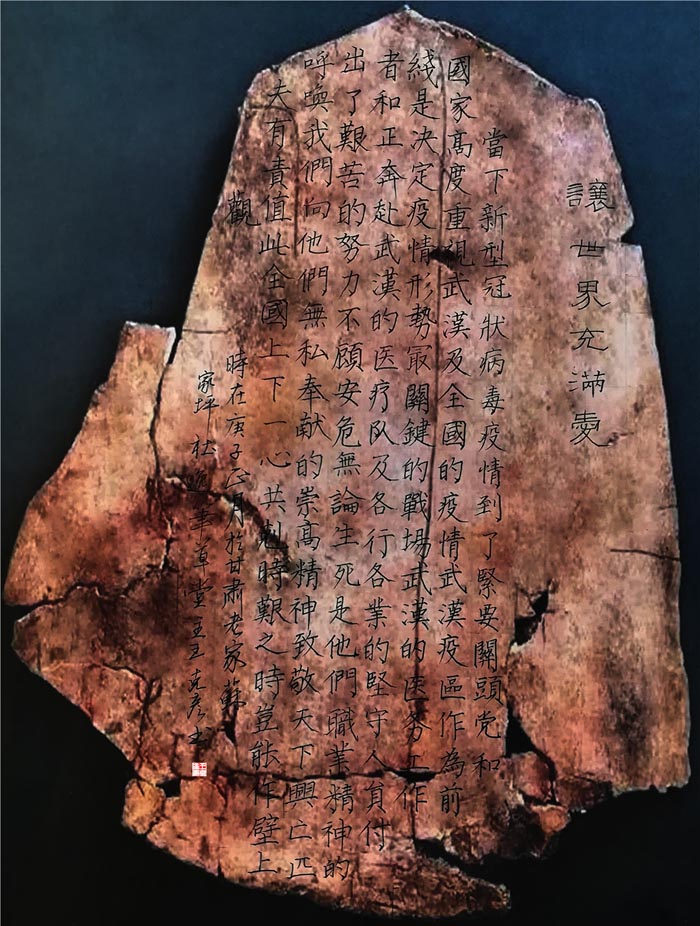 讓世界充滿愛
當下新型冠狀病毒疫情到了緊要關頭党和
國家高度重視武漢及全國的疫情武漢疫區作為前
綫是决定疫情形勢冣關鍵的戰場武漢的医务工作
者和正奔赴武漢的医疗队及各行各業的堅守人員付
出了艱苦的努力不顧安危無論生死是他們職業精神的
呼喚我們向他們無私奉献的崇高精神致敬天下興亡匹
夫有責值此全國上下一心共剋時艱之時豈能作壁上
觀
時在庚子正月於甘肅老家蘇
家坪草堂主王克彥书